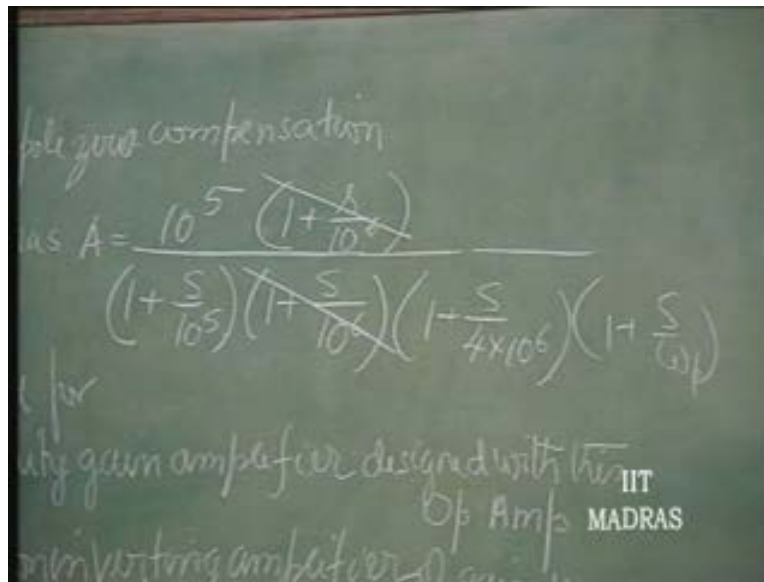 pole zero compensation
has A = 10^5 (1 + S/10^6)
(1 + S/10^5) (1 + S/10^6) (1 + S/4×10^6) (1 + S/ωp)
for
unity gain amplifier designed with this
Op Amp
IIT
MADRAS
noninverting amplifier